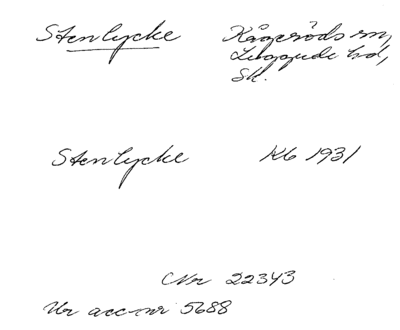 Stenlycke Kågeröds sn,
Luggude hd,
Sk.
Stenlycke Kb 1931
CNr 22343
Ur acc-nr 5688